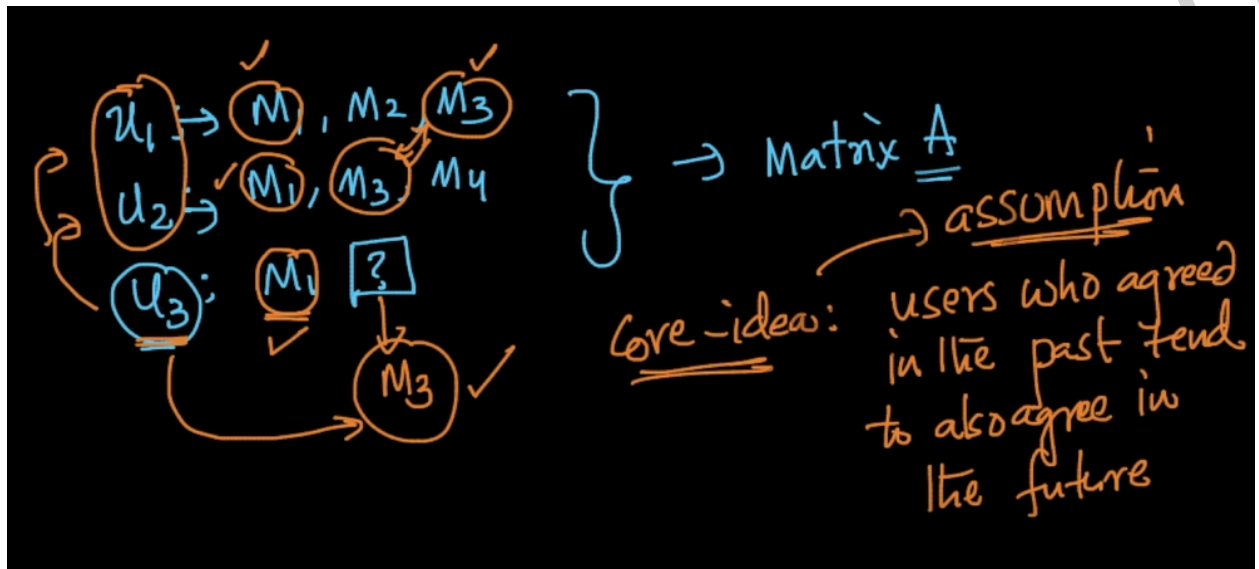 U1 → M1, M2, M3
U2 → M1, M3, M4
→ Matrix A
U3: M1 ?
M3
assumption
Core-idea: users who agreed
in the past tend
to also agree in
the future